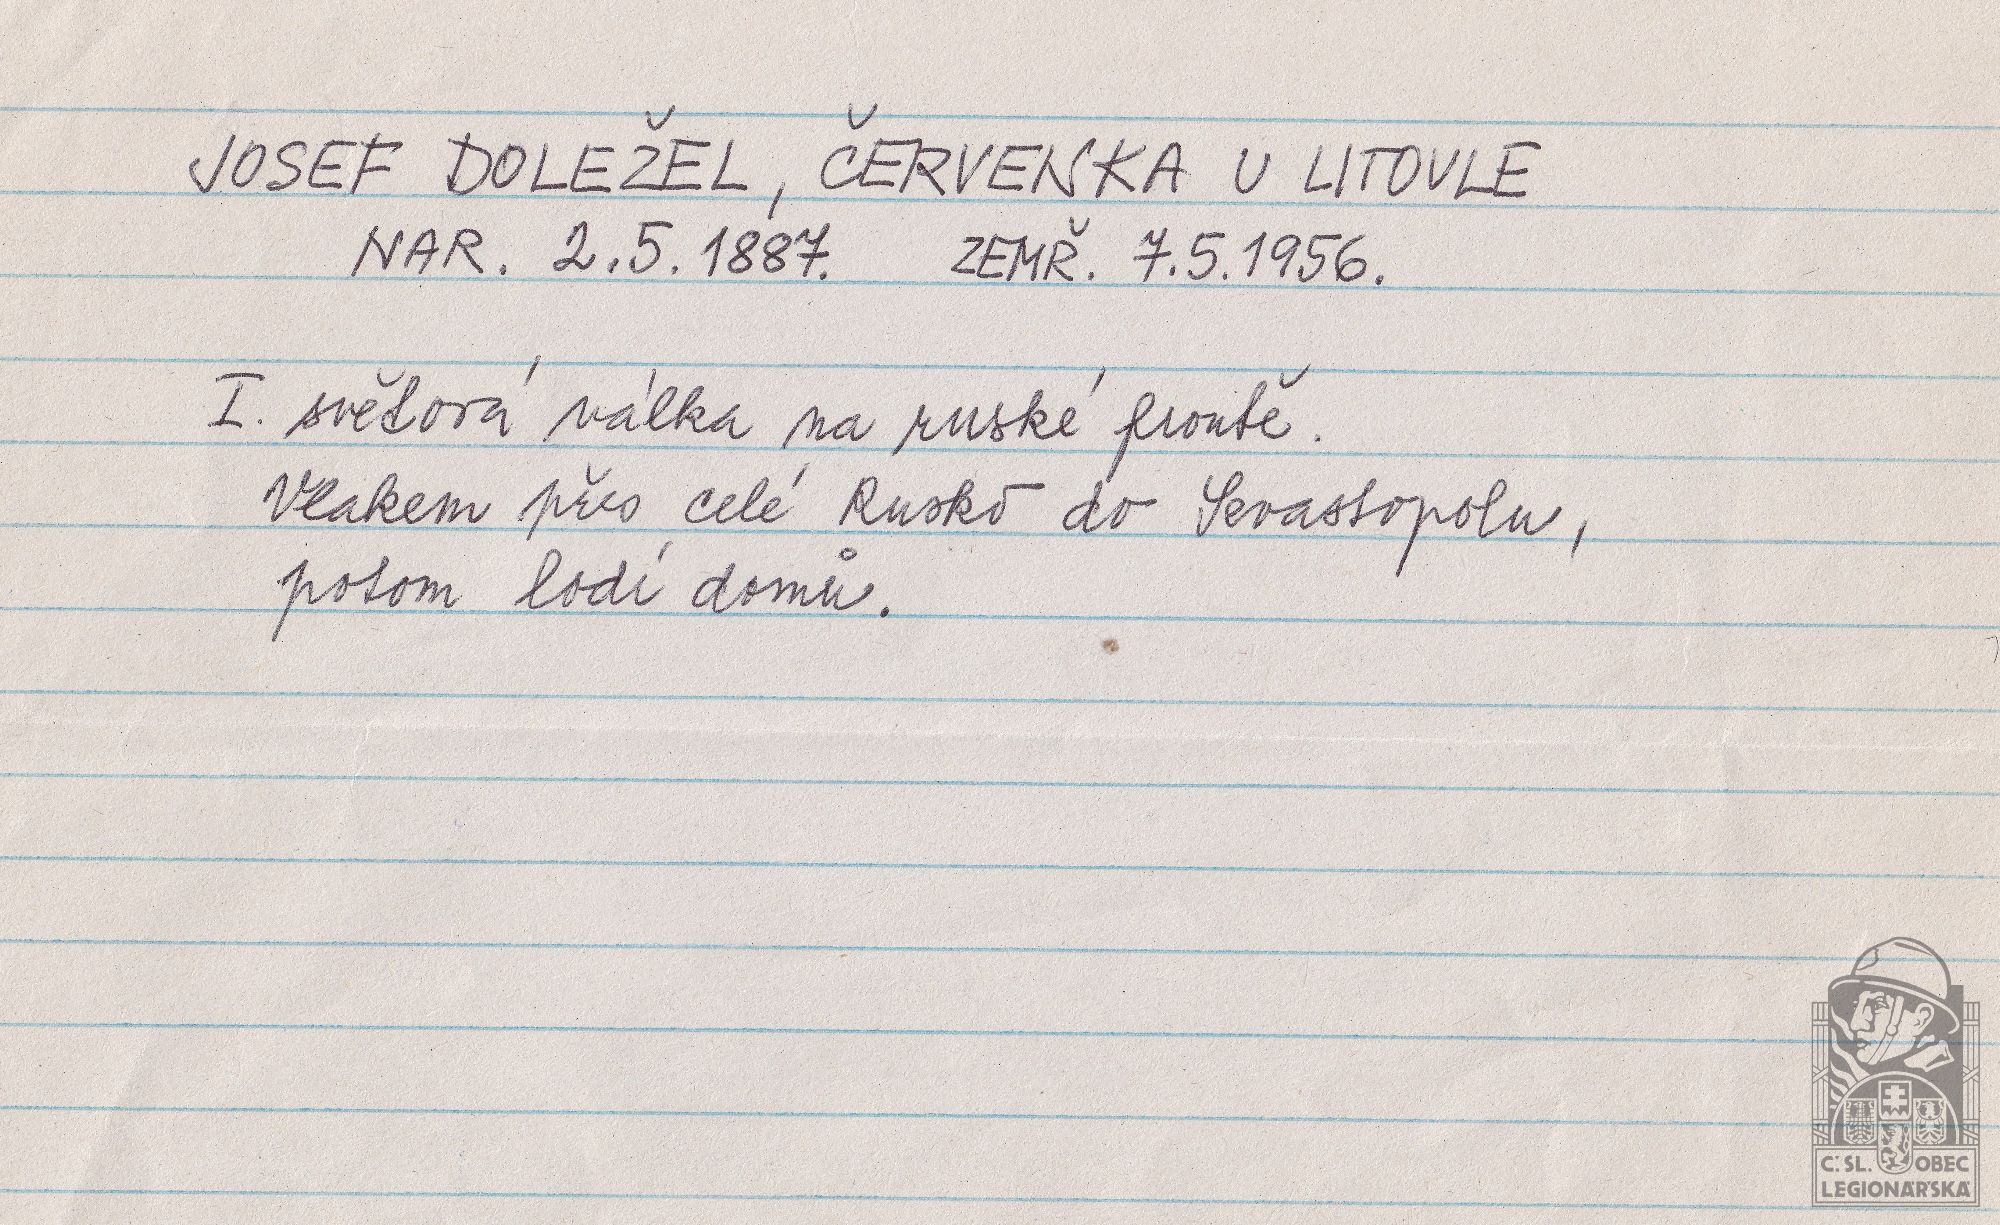 JOSEF DOLEŽEL, ČERVENKA U LITOVLE
NAR. 2.5.1887. ZEMŘ. 7.5.1956.
I. světová válka na ruské frontě.
Vlakem přes celé Rusko do Sevastopolu,
potom lodí domů.
Č.SL. OBEC
LEGIONÁŘSKÁ